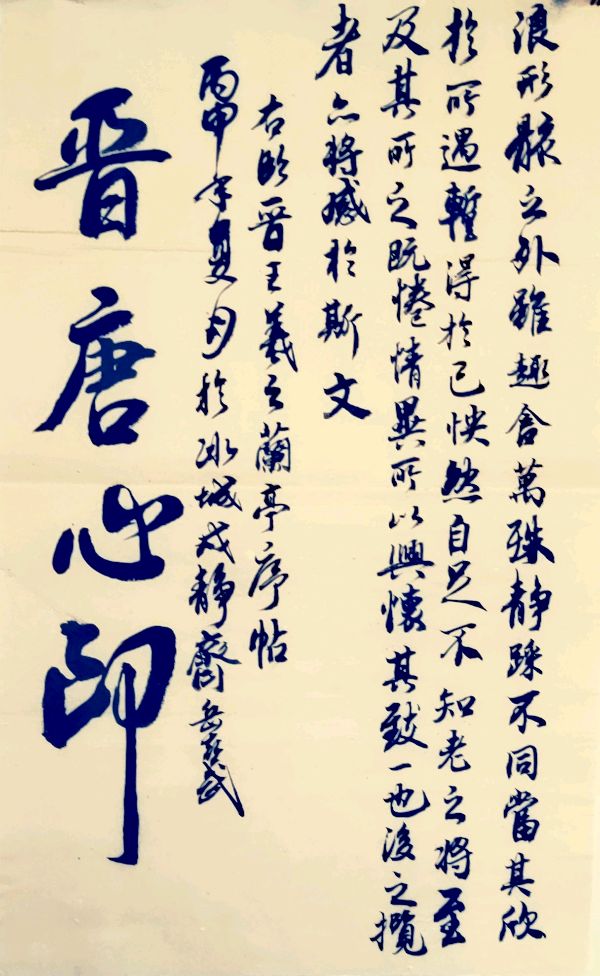 浪形骸之外雖趣舍萬殊静躁不同當其欣
於所遇暫得於己怏然自足不知老之將至
及其所之既惓情異所以興懷其致一也後之攬
者亦將感於斯文
右臨晉王羲之蘭亭序帖
丙申年夏月於冰城戍静齋岳
晋唐心印